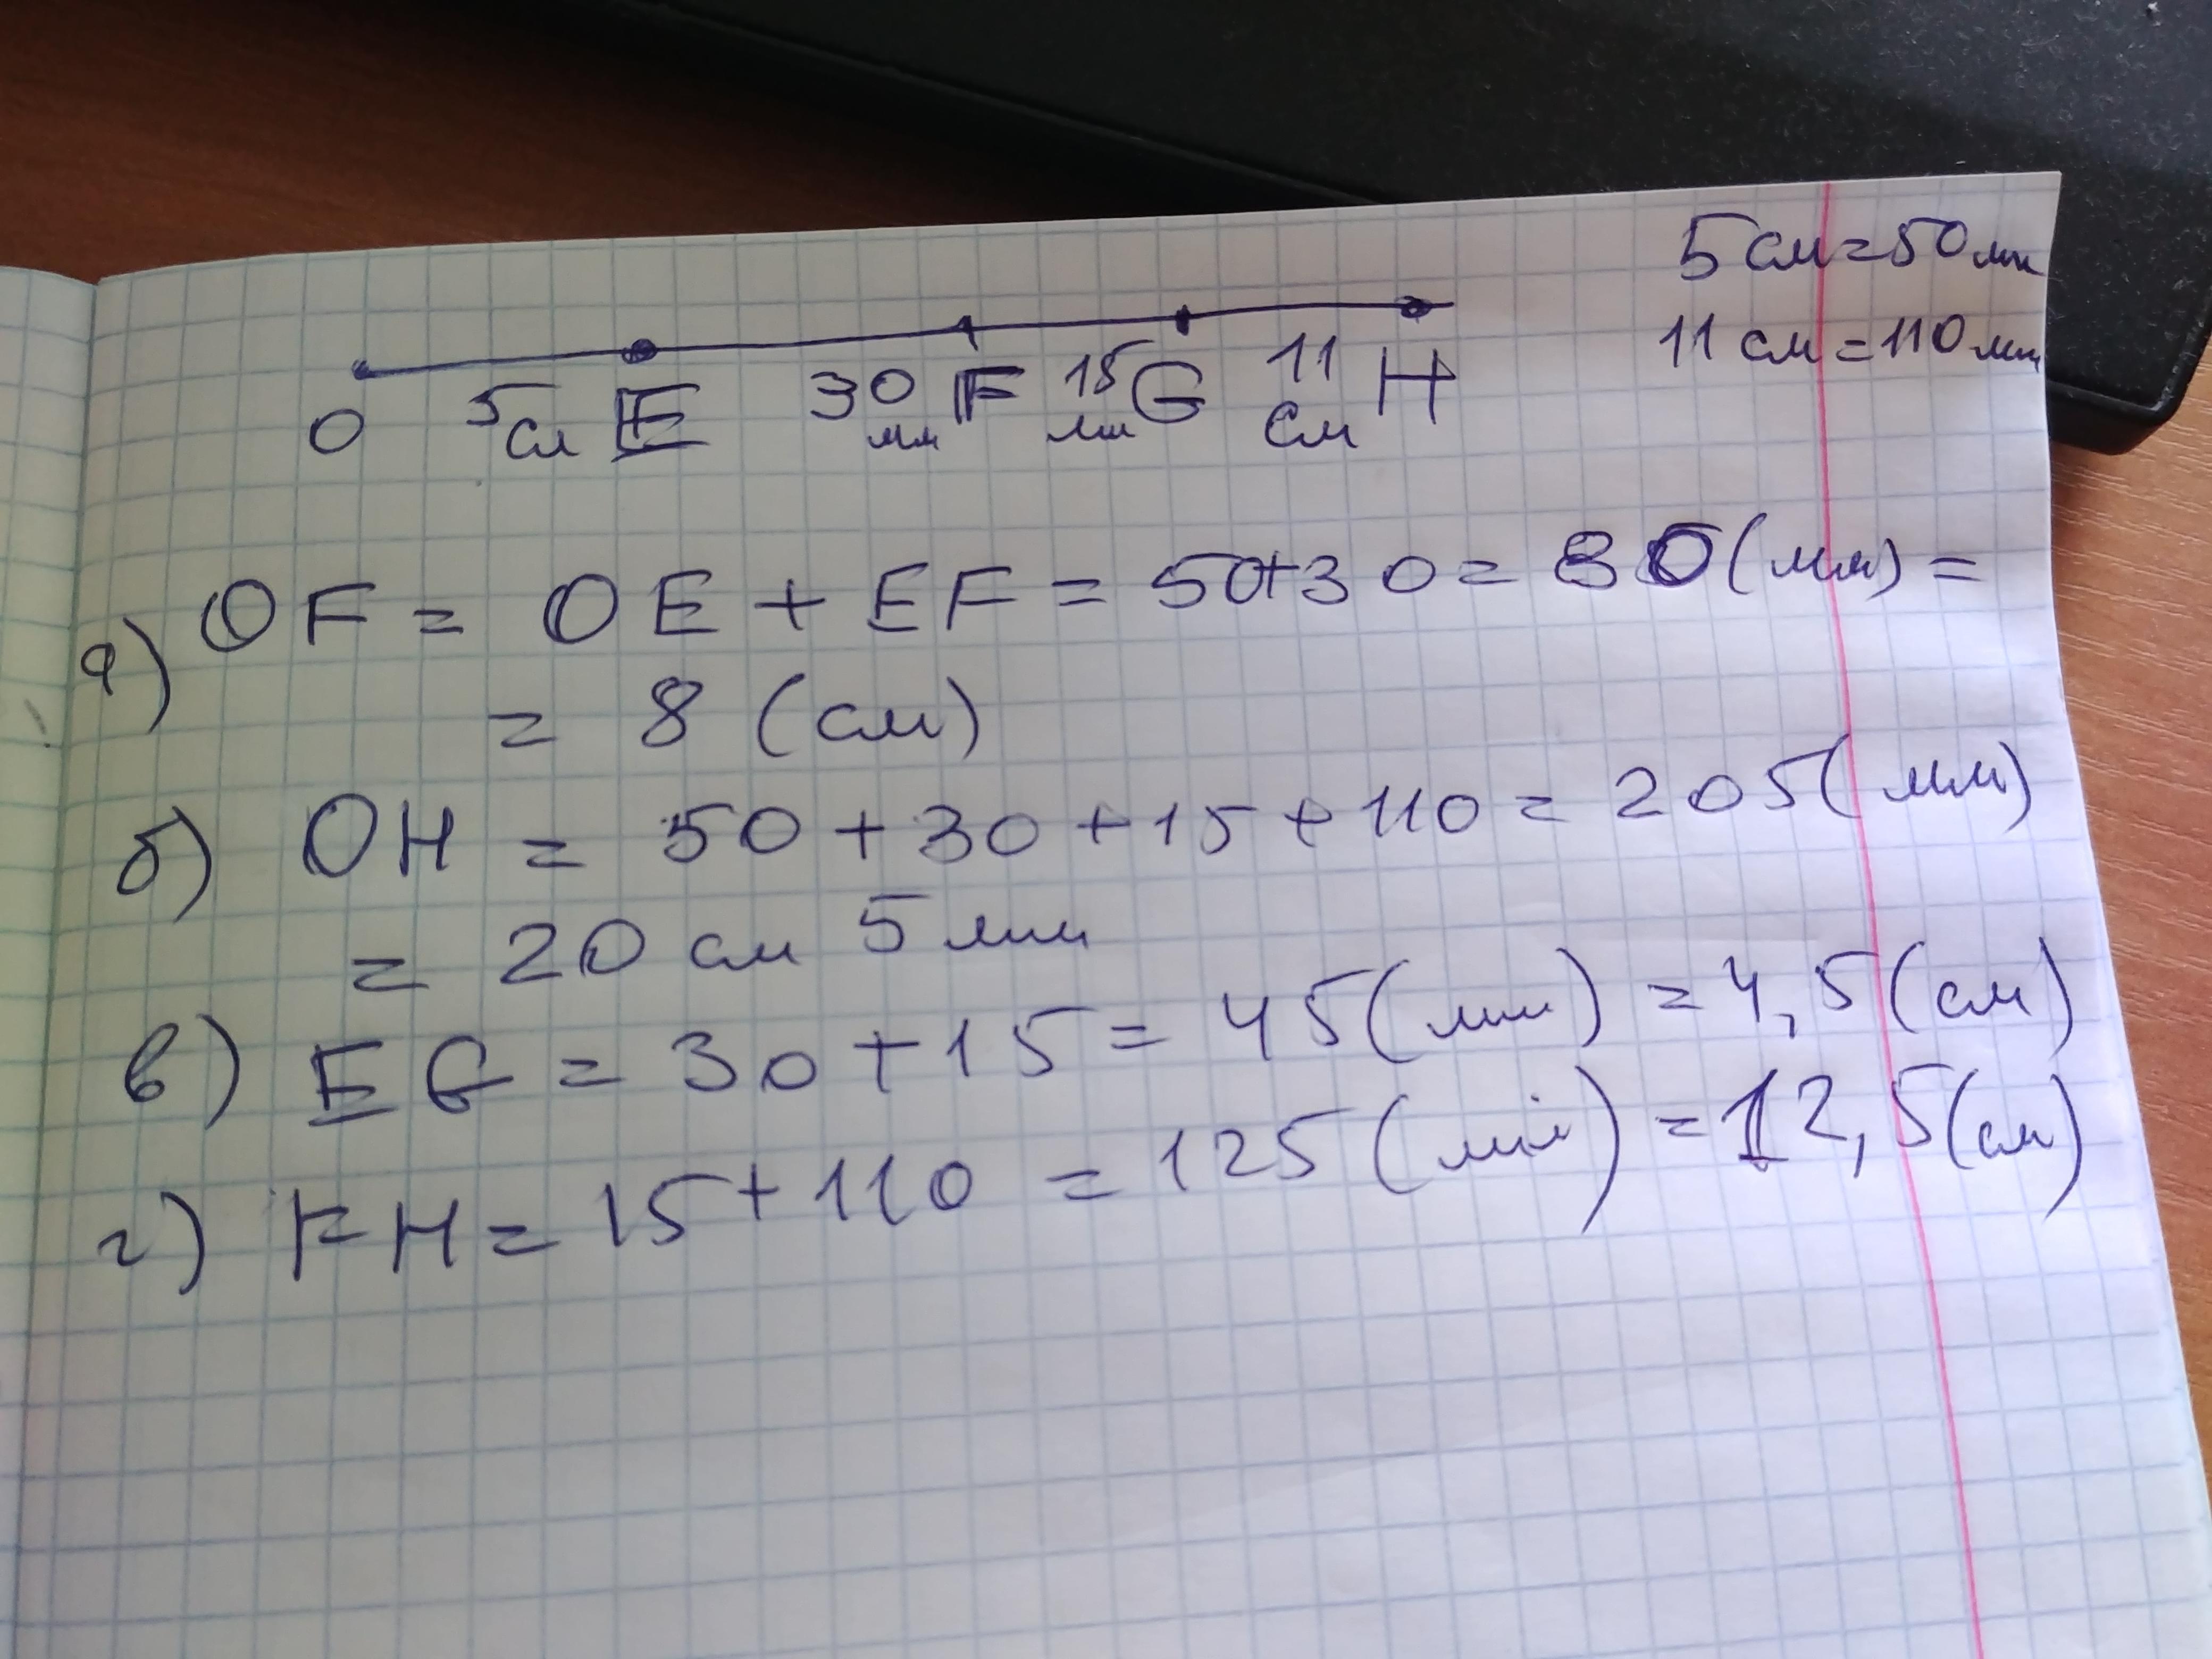 5 см = 50 мм
11 см = 110 мм
O 5 см E 30 мм F 15 мм G 11 см H
а) OF = OE + EF = 50+30 = 80 (мм) =
= 8 (см)
б) OH = 50 + 30 + 15 + 110 = 205 (мм)
= 20 см 5 мм
в) EG = 30 + 15 = 45 (мм) = 4,5 (см)
г) FH = 15 + 110 = 125 (мм) = 12,5 (см)